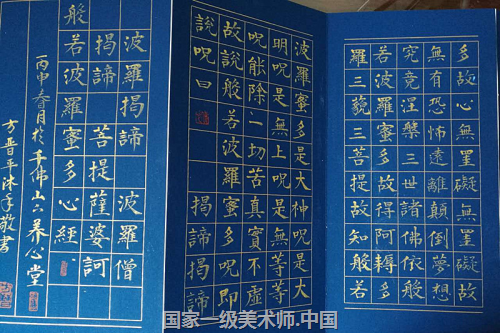 多故心無罣礙無罣礙故
無有恐怖遠離顛倒夢想
究竟涅槃三世諸佛依般
若波羅蜜多故得阿耨多
羅三藐三菩提故知般若
波羅蜜多是大神呪是大
明呪是無上呪是無等等
呪能除一切苦真實不虛
故說般若波羅蜜多呪即
說呪曰 揭諦揭諦
波羅揭諦 波羅僧
揭諦 菩提薩婆訶
般若波羅蜜多心經
丙申春月於千佛山養心堂
方晋平沐手敬書
国家一级美术师.中国